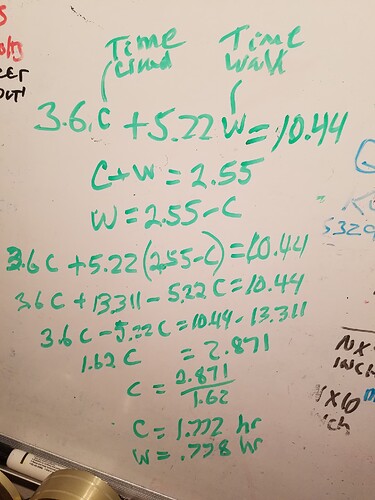 Time Time
climb walk
3.6 C + 5.22 W = 10.44
C + W = 2.55
W = 2.55 - C
3.6 C + 5.22 (2.55 - C) = 10.44
3.6 C + 13.311 - 5.22 C = 10.44
3.6 C - 5.22 C = 10.44 - 13.311
1.62 C = 2.871
C = 2.871
1.62
C = 1.772 hr
W = .778 hr
OUT!